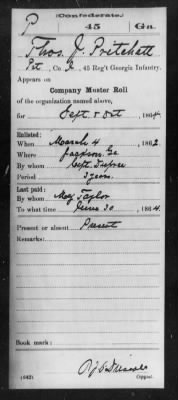 (Confederate.)
P 45 Ga.
Thos. J. Pritchett
Pvt, Co. I, 45 Reg't Georgia Infantry.
Appears on
Company Muster Roll
of the organization named above,
for Sept & Oct, 1864
Enlisted:
When March 4, 1862
Where Jackson, Ga
By whom Capt.
Period 3 years
Last paid:
By whom Maj Taylor
To what time June 30, 1864
Present or absent Present
Remarks:
Book mark:
(642)
Copyist.